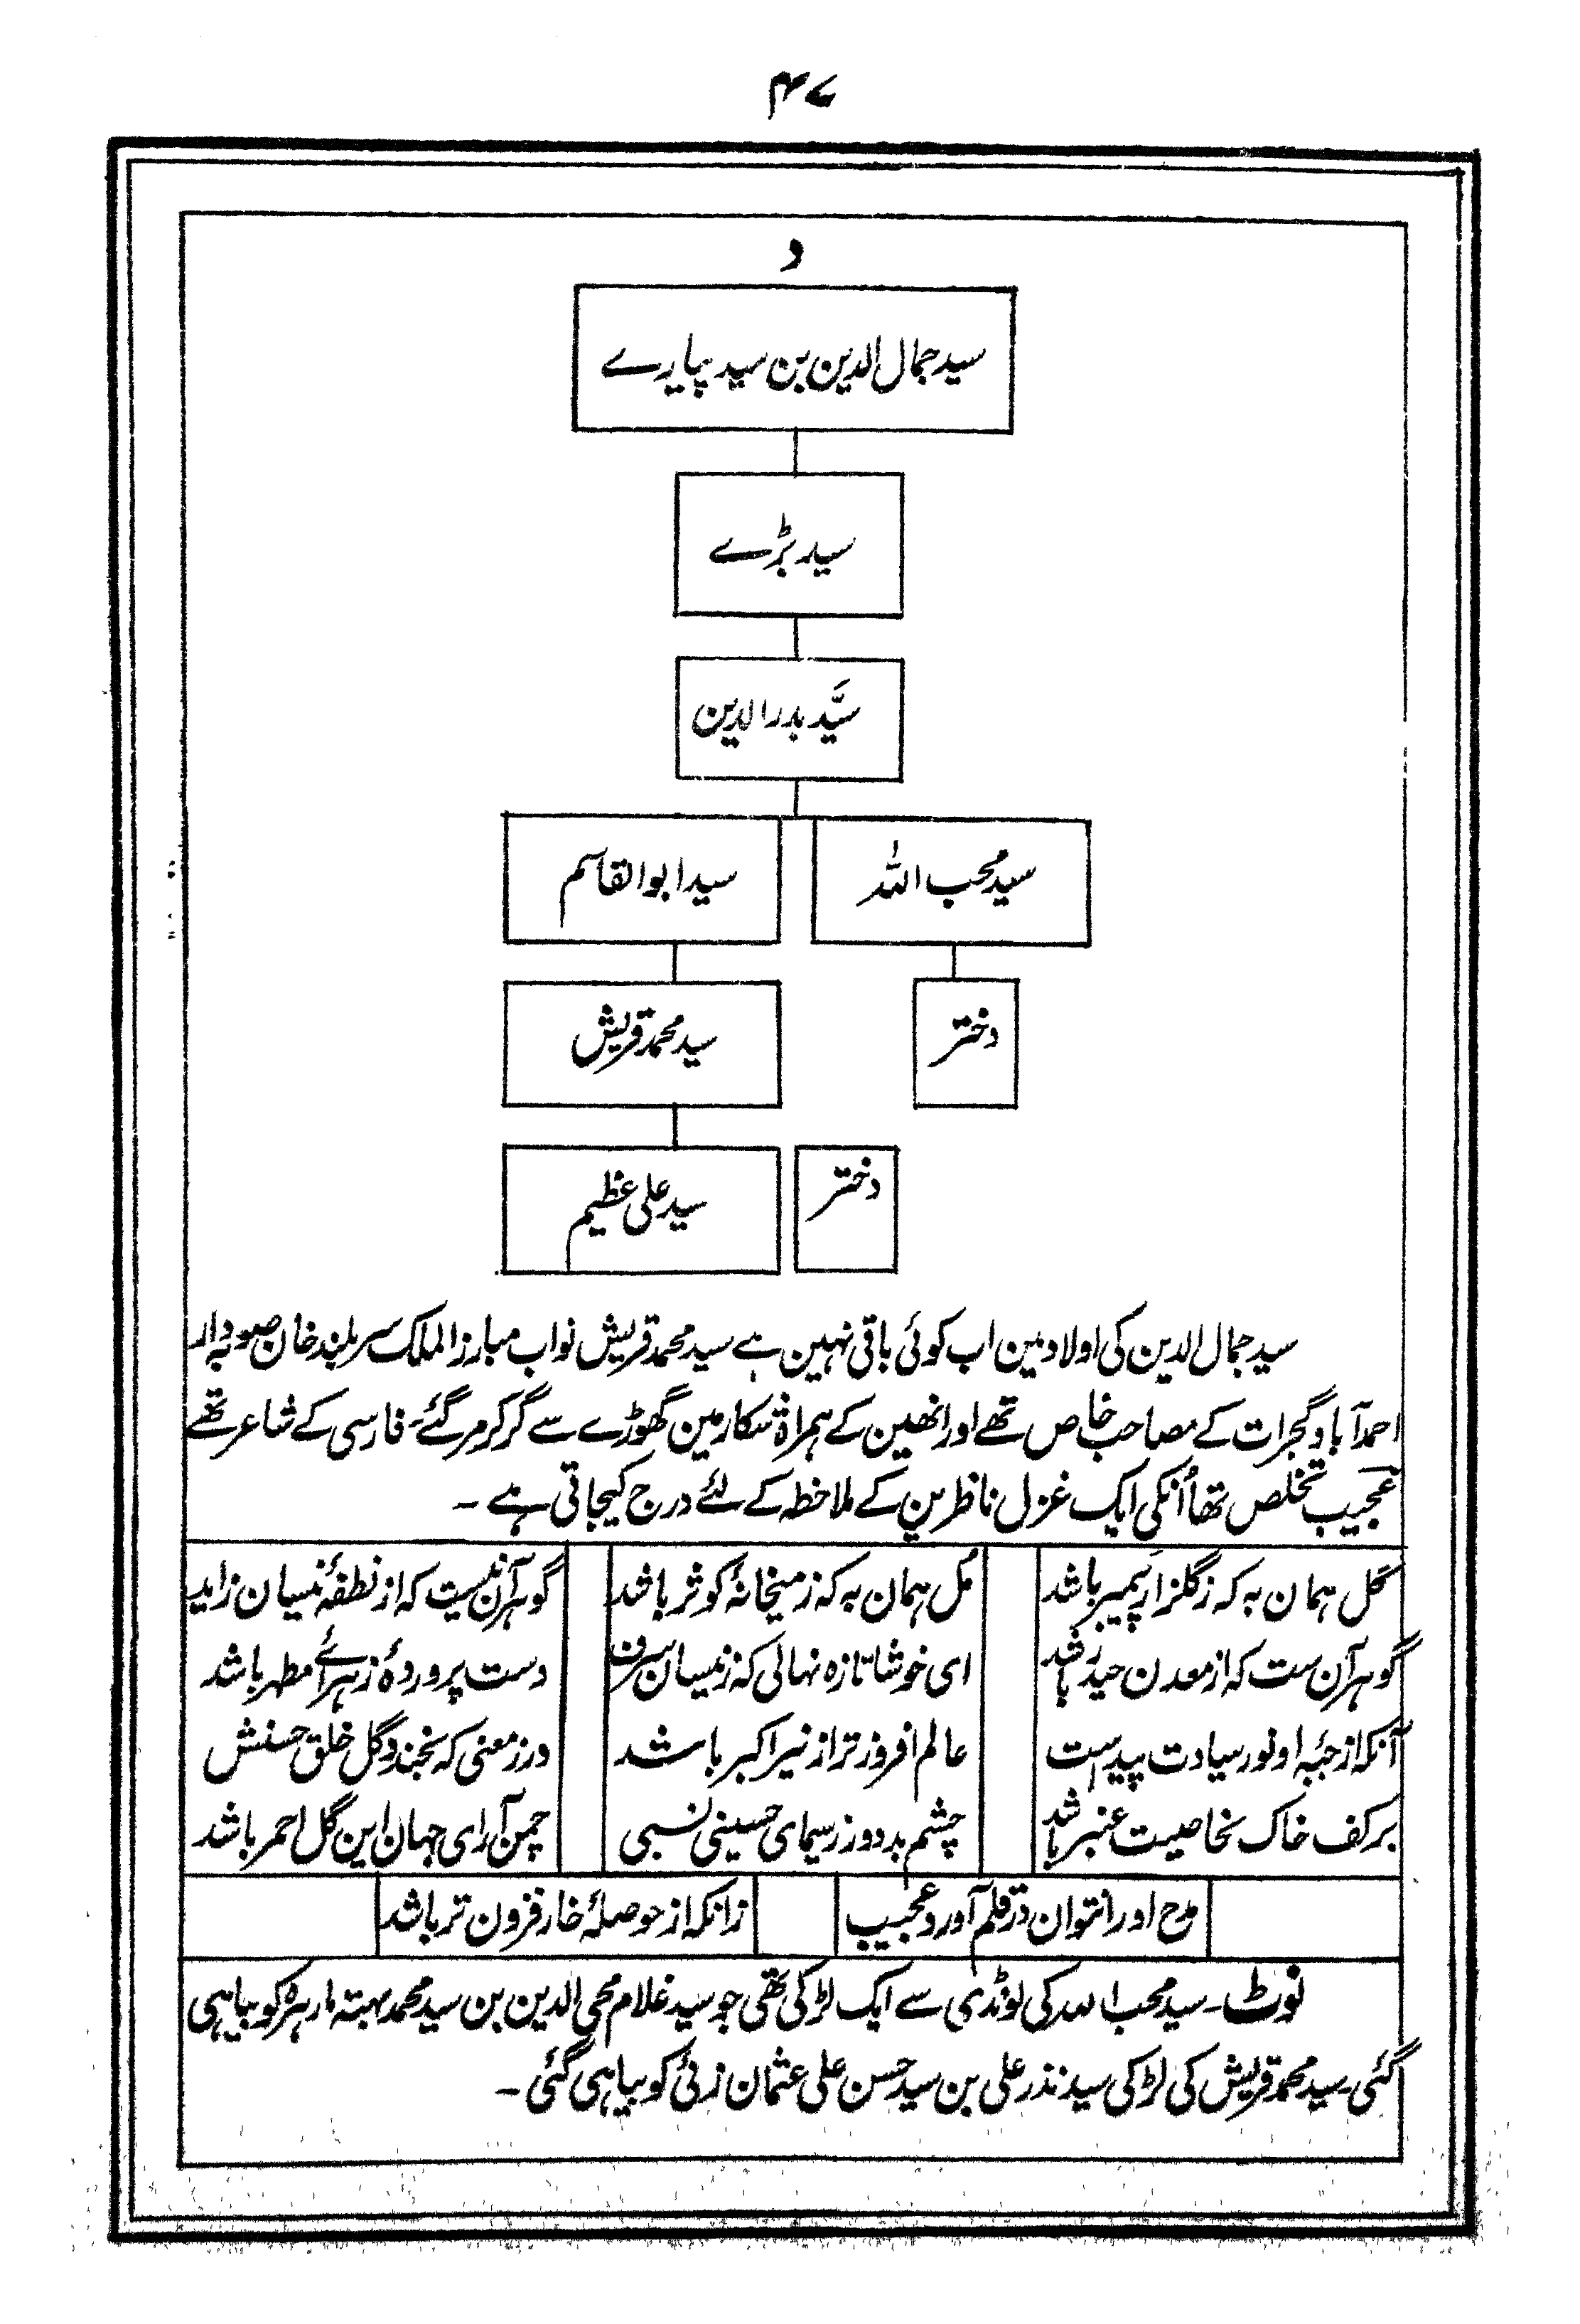 ۴۷
د
سید جمال الدین بن سید پیارے
سید بڑے
سیَّد بدرالدین
سید محب اللہ
سید ابوالقاسم
دختر
سید محمد قریش
دختر
سید علی عظیم
سید جمال الدین کی اولاد مین اب کوئی باقی نہین ہے سید محمد قریش نواب مبارز الملک سر بلند خان صوبہ دار
احمدآباد گجرات کے مصاحب خاص تھے اور انھین کے ہمراہ شکار مین گھوڑے سے گر کر مر گئے۔ فارسی کے شاعر تھے
عجیب تخلص تھا اُنکی ایک غزل ناظرین کے ملاخطہ کے لئے درج کیجاتی ہے ۔
گل ہمان بہ کہ ز گلزار پیمبر باشد
مُل ہمان بہ کہ ز میخانۂ کوثر باشد
گوہر آن نیست کہ از نطفۂ نیسان زاید
گوہر آن ست کہ از معدن حیدر باشد
ای خوشا تازہ نہالی کہ ز نیسان شرف
دست پروردۂ زہرائے مطہر باشد
آنکہ از جبۂ او نور سیادت پیدا ست
عالم افروز تر از نیر اکبر باشد
درز معنی کہ بخندد گل خلق حسنش
بر کف خاک بخاصیت عنبر باشد
چشم بد دور ز سیمای حسینی نسبی
چمن آرای جہان این گل احمر باشد
مدح او را نتوان در قلم آورد عجیب
زانکہ از حوصلۂ خار فزون تر باشد
نوٹ۔ سید محب اللہ کی لونڈی سے ایک لڑکی تھی جو سید غلام محی الدین بن سید محمد بہتہ مارہرہ کو بیاہی
گئی۔ سید محمد قریش کی لڑکی سید نذر علی بن سید حسن علی عثمان زئی کو بیاہی گئی ۔